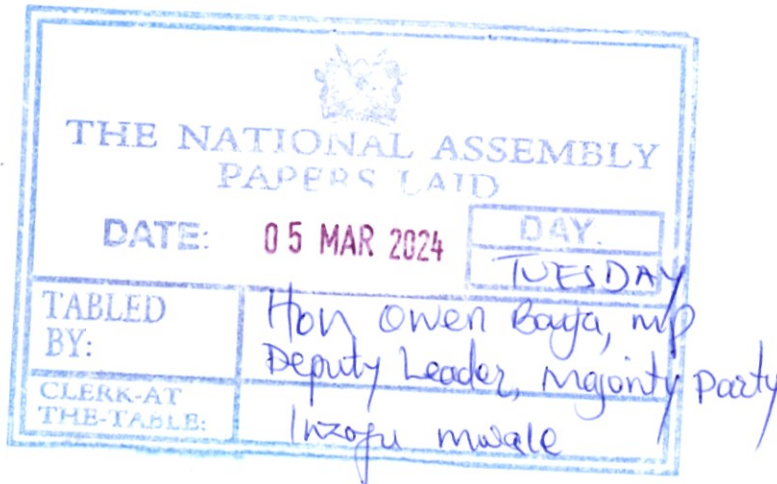 THE NATIONAL ASSEMBLY
PAPERS LAID
DATE: 05 MAR 2024
DAY.
TUESDAY
TABLED BY:
Hon Owen Baya, MP
Deputy Leader, Majority Party
CLERK-AT THE-TABLE:
Inzofu Mwale